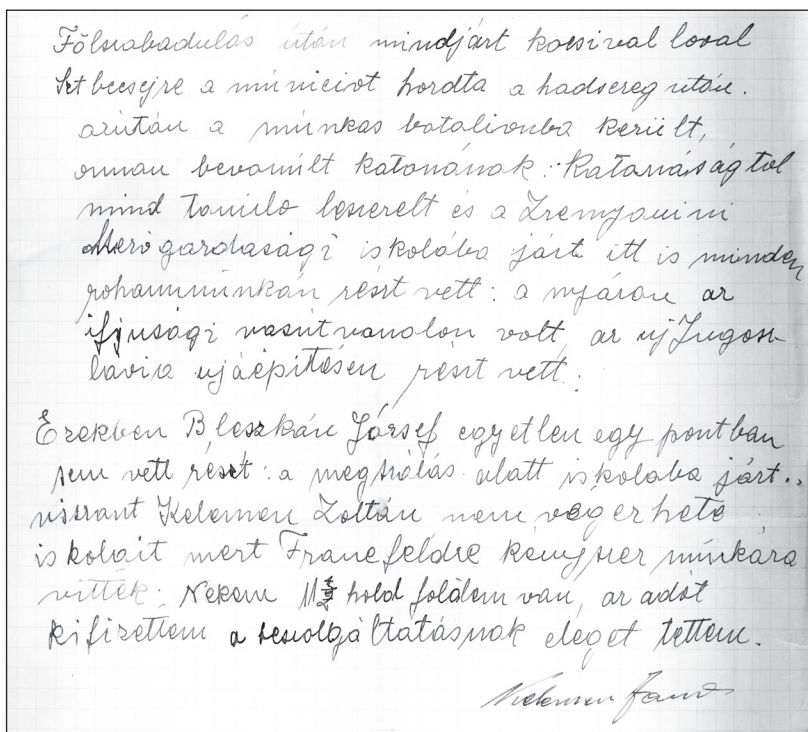 Fölszabadulás után mindjárt kocsival loval
Szt becsejre a municiot hordta a hadsereg után.
azután a munkas batalionba került,
onnan bevonult katonának. Katonaságtol
mind tanuló leszerelt és a Zrenyanini
Mezőgazdasági iskolába járt itt is minden
rohammunkán részt vett: a nyáron az
ifjusági vasútvonalon volt, az uj Jugosz
lavia ujáépítésén részt vett.
Ezekben Bleszkán József egyetlen egy pontban
sem vett részt: a megszálás alatt iskolaba járt..
viszant Kelemen Zoltán nem végezhete
iskolait mert Francfeldre kényszer munkára
vitték. Nekem 11 hold földem van, az adót
kifizettem a beszolgáltatásnak eleget tettem.
Kelemen János